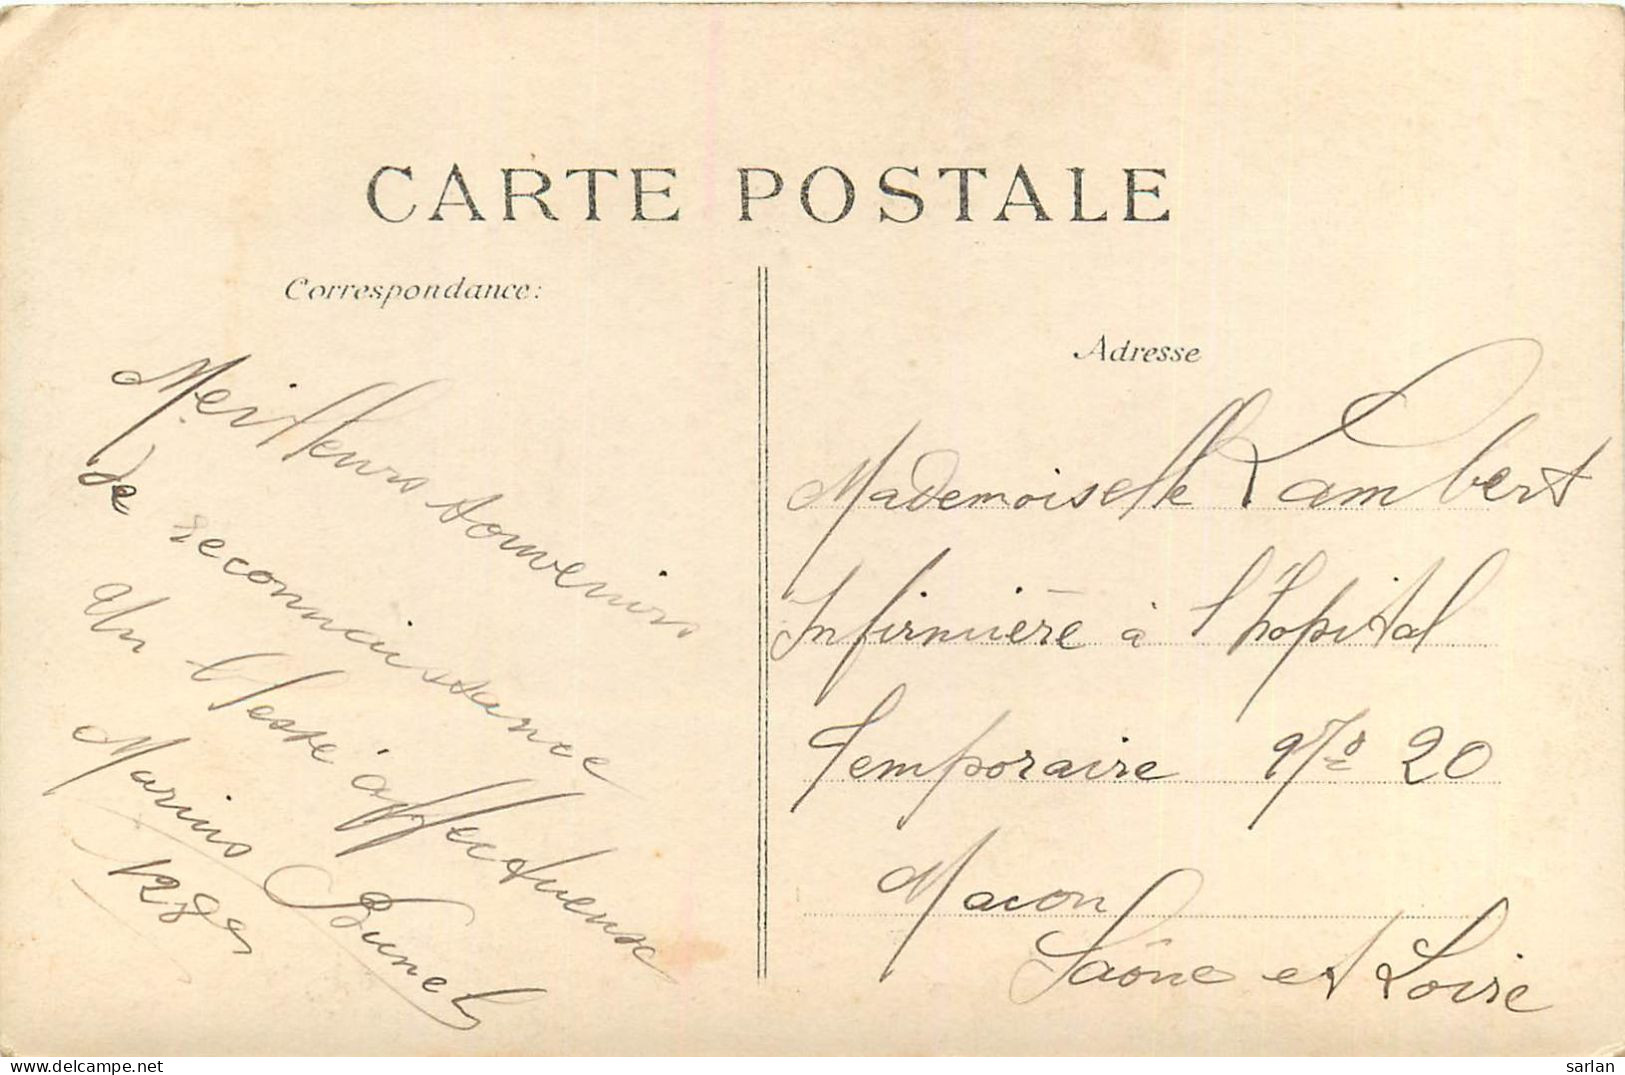 CARTE POSTALE
Correspondance:
Meilleurs souvenirs
de reconnaissance
Un blessé affectueux
Marius Brunel
Adresse
Mademoiselle Lambert
Infirmière à l'hopital
Temporaire No 20
Macon
Saône et Loire
sarlan